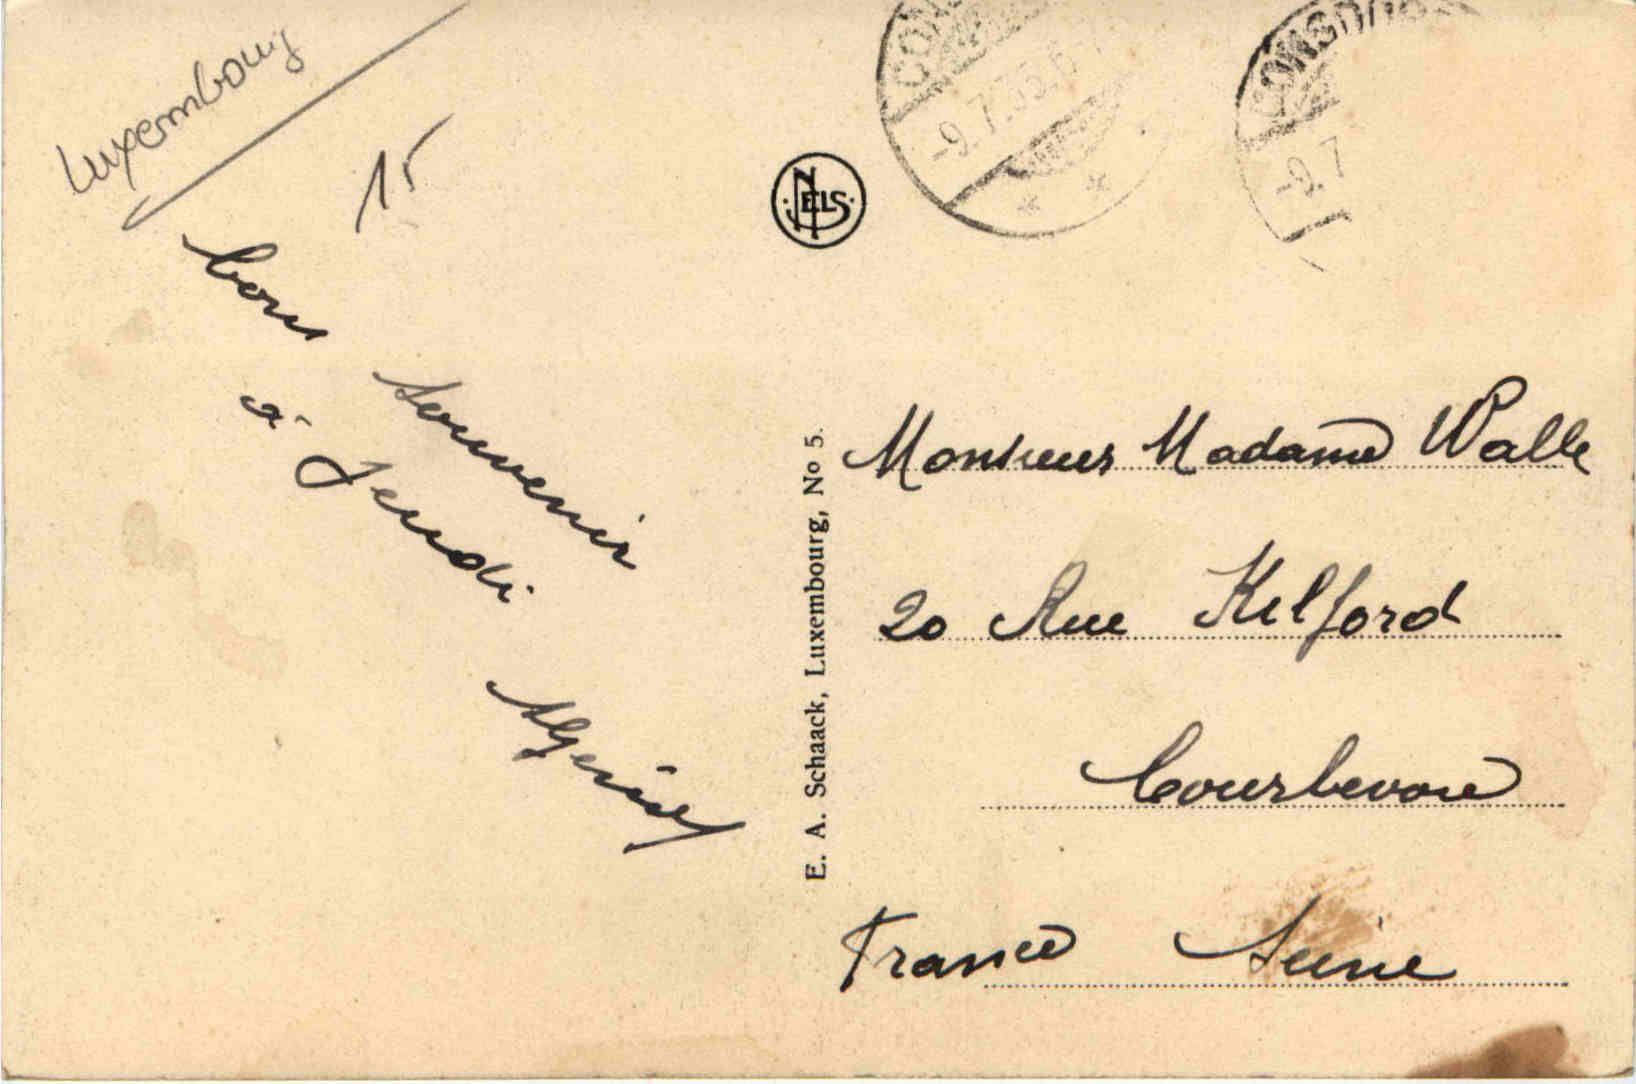 Luxembourg
15
bons souvenir
a Jeudi
NELS
CONSDOR
-9.7.35.6-
-9.7
E. A. Schaack, Luxembourg, No 5.
Monsieur Madame Walle
20 Rue Kilford
Courbevoie
France Seine